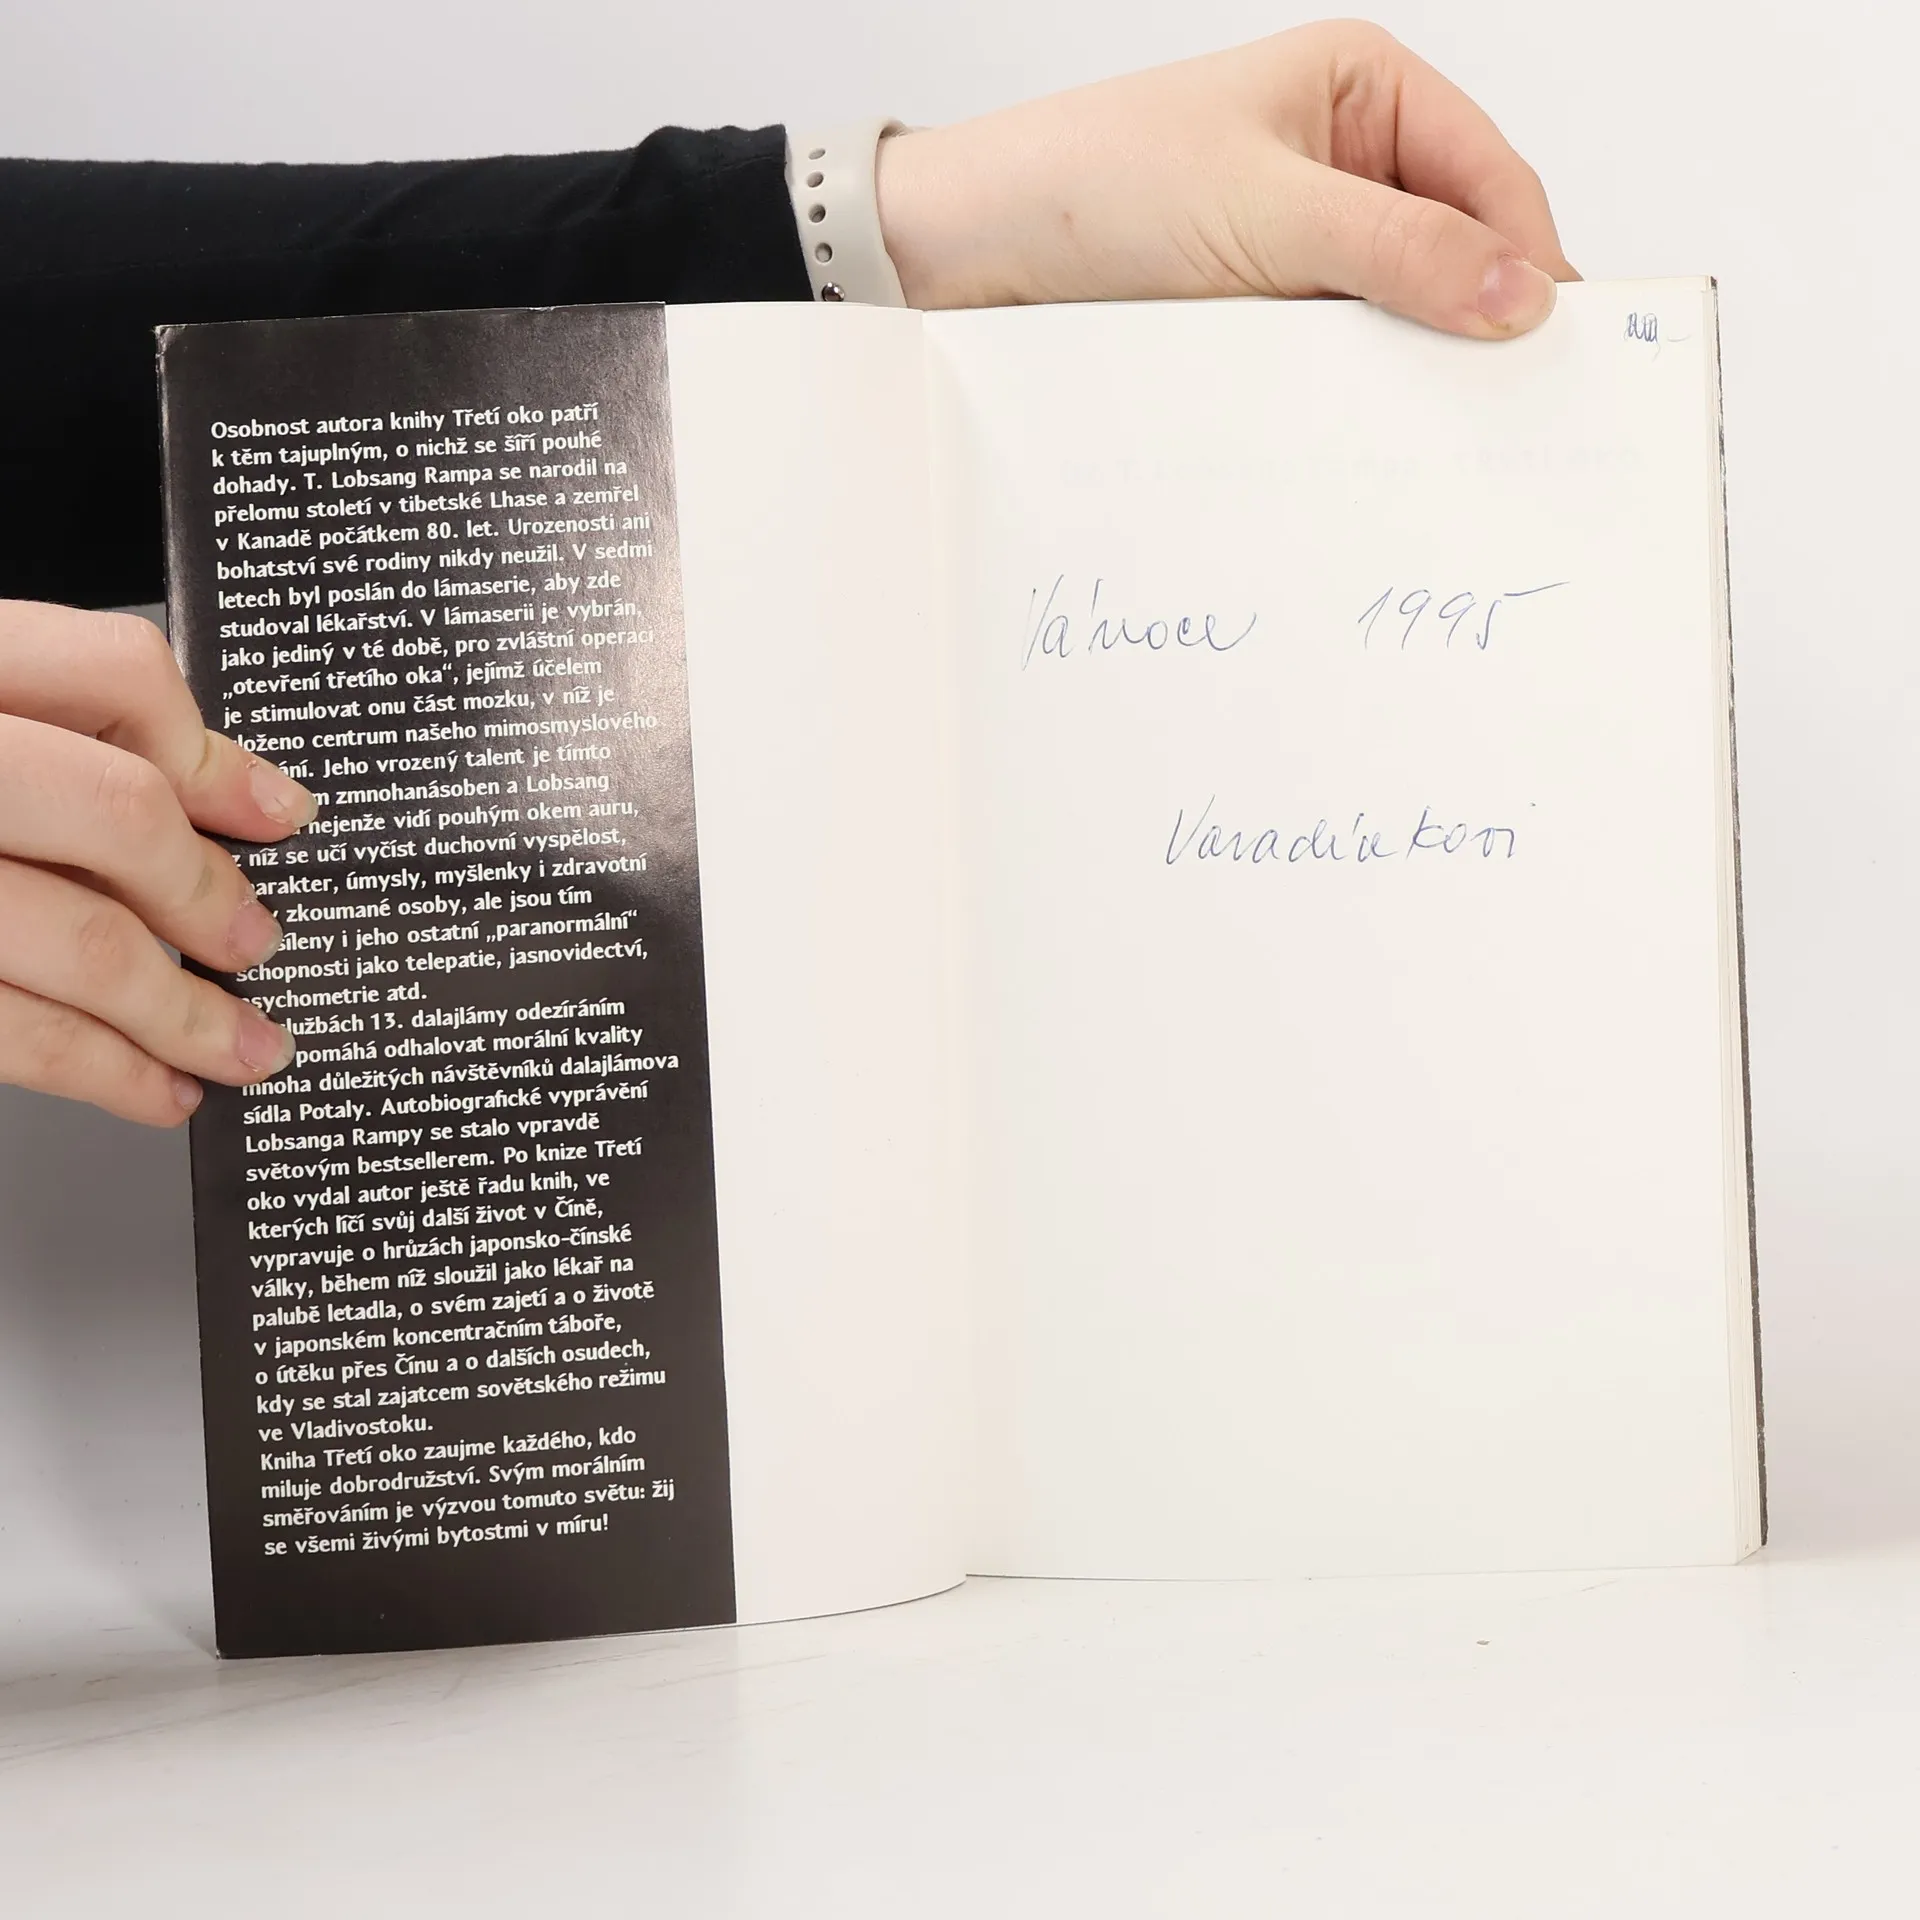 Osobnost autora knihy Třetí oko patří
k těm tajuplným, o nichž se šíří pouhé
dohady. T. Lobsang Rampa se narodil na
přelomu století v tibetské Lhase a zemřel
v Kanadě počátkem 80. let. Urozenosti ani
bohatství své rodiny nikdy neužil. V sedmi
letech byl poslán do lámaserie, aby zde
studoval lékařství. V lámaserii je vybrán,
jako jediný v té době, pro zvláštní operaci
„otevření třetího oka“, jejímž účelem
je stimulovat onu část mozku, v níž je
loženo centrum našeho mimosmyslového
ání. Jeho vrozený talent je tímto
m zmnohanásoben a Lobsang
nejenže vidí pouhým okem auru,
z níž se učí vyčíst duchovní vyspělost,
arakter, úmysly, myšlenky i zdravotní
zkoumané osoby, ale jsou tím
síleny i jeho ostatní „paranormální“
schopnosti jako telepatie, jasnovidectví,
sychometrie atd.
službách 13. dalajlámy odezíráním
pomáhá odhalovat morální kvality
mnoha důležitých návštěvníků dalajlámova
sídla Potaly. Autobiografické vyprávění
Lobsanga Rampy se stalo vpravdě
světovým bestsellerem. Po knize Třetí
oko vydal autor ještě řadu knih, ve
kterých líčí svůj další život v Číně,
vypravuje o hrůzách japonsko-čínské
války, během níž sloužil jako lékař na
palubě letadla, o svém zajetí a o životě
v japonském koncentračním táboře,
o útěku přes Čínu a o dalších osudech,
kdy se stal zajatcem sovětského režimu
ve Vladivostoku.
Kniha Třetí oko zaujme každého, kdo
miluje dobrodružství. Svým morálním
směřováním je výzvou tomuto světu: žij
se všemi živými bytostmi v míru!
Vánoce 1995